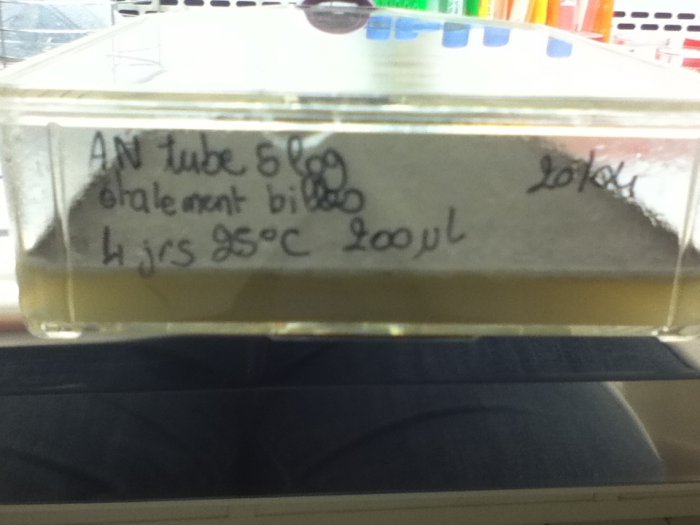 AN tube 5 log
étalement billes
4 jrs 25°C 200 µL
20/04